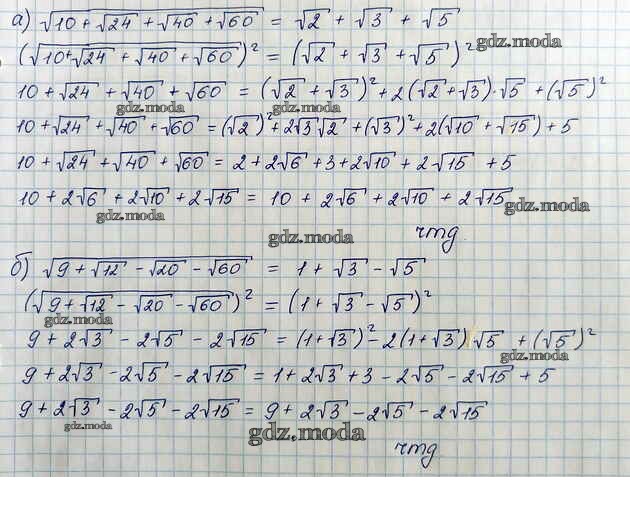 а) √(10 + √24 + √40 + √60) = √2 + √3 + √5
(√(10 + √24 + √40 + √60))² = (√2 + √3 + √5)²
gdz.moda
10 + √24 + √40 + √60 = (√2 + √3)² + 2(√2 + √3)·√5 + (√5)²
gdz.moda
10 + √24 + √40 + √60 = (√2)² + 2√3√2 + (√3)² + 2(√10 + √15) + 5
gdz.moda
10 + √24 + √40 + √60 = 2 + 2√6 + 3 + 2√10 + 2√15 + 5
10 + 2√6 + 2√10 + 2√15 = 10 + 2√6 + 2√10 + 2√15
gdz.moda
gdz.moda
gdz.moda
чтд.
б) √(9 + √12 - √20 - √60) = 1 + √3 - √5
(√(9 + √12 - √20 - √60))² = (1 + √3 - √5)²
gdz.moda
9 + 2√3 - 2√5 - 2√15 = (1 + √3)² - 2(1 + √3)√5 + (√5)²
gdz.moda
9 + 2√3 - 2√5 - 2√15 = 1 + 2√3 + 3 - 2√5 - 2√15 + 5
9 + 2√3 - 2√5 - 2√15 = 9 + 2√3 - 2√5 - 2√15
gdz.moda
gdz.moda
чтд